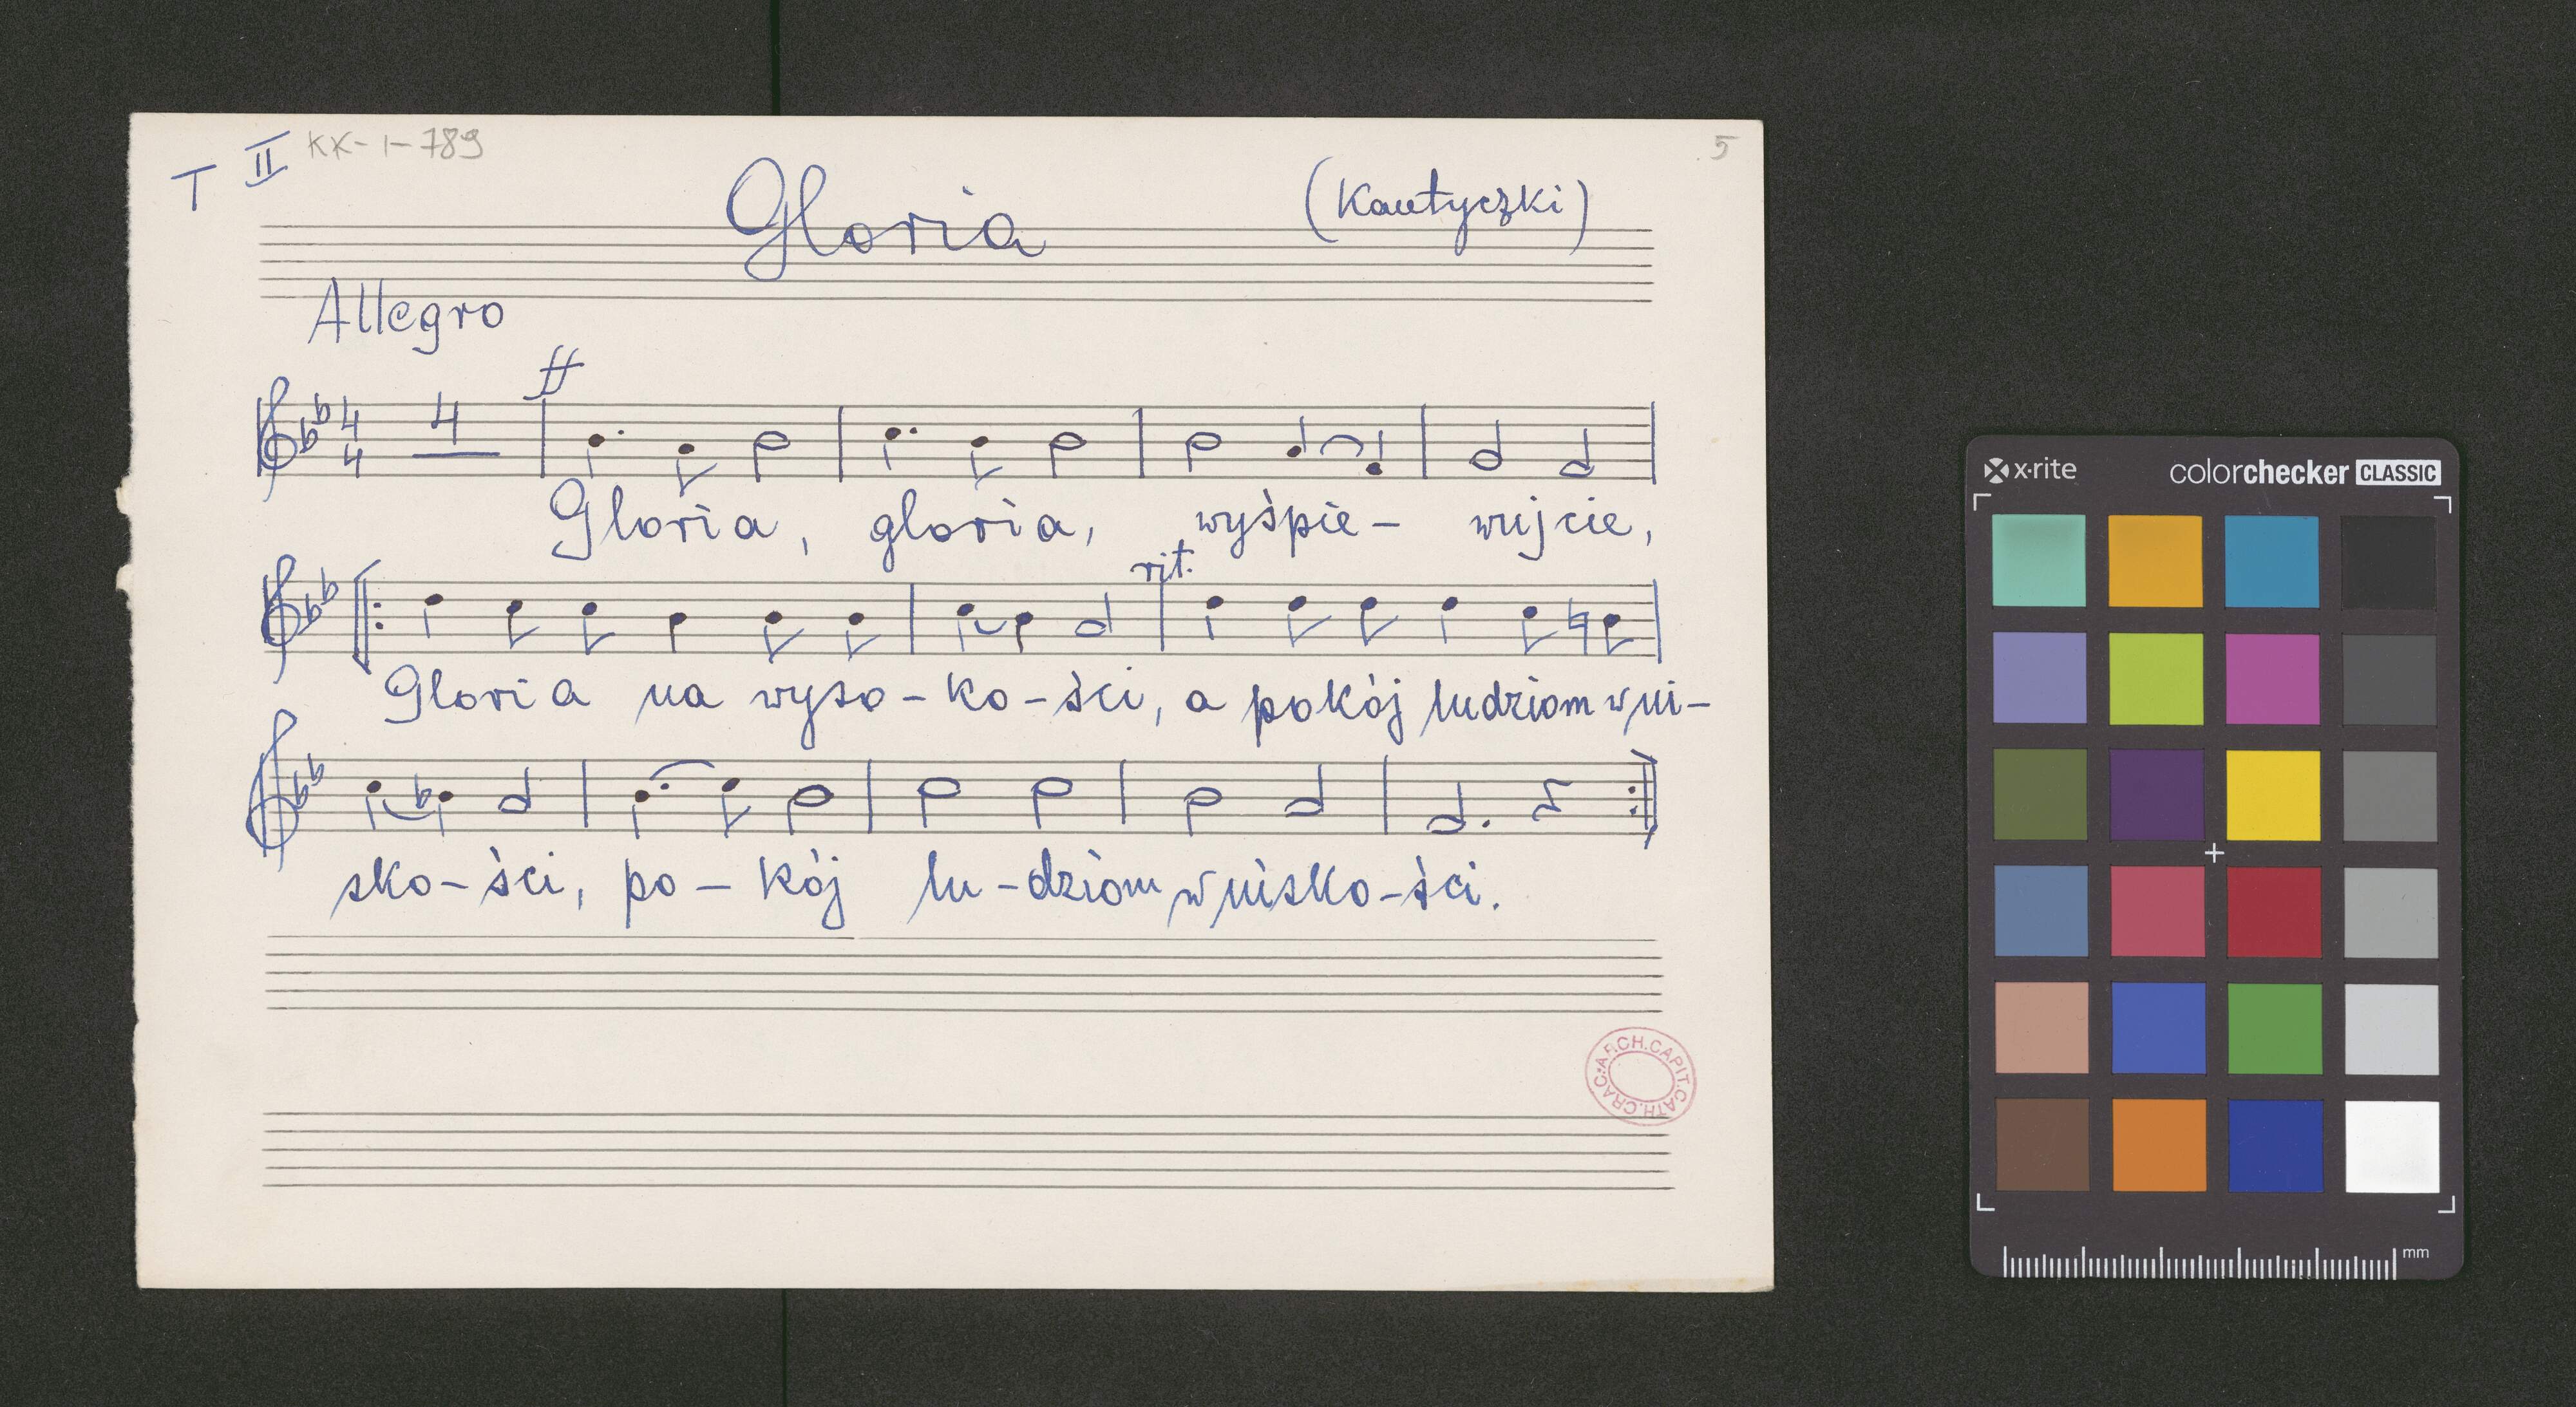 T II KK-I-789
5
Gloria
(Kantyczki)
Allegro
ff
4
4 4
Gloria, gloria, wyśpie- wujcie,
rit.
Gloria na wyso-ko-ści, a pokój ludziom w ni-
sko-ści, po-kój lu-dziom w nisko-ści.
ARCH.CAPIT.CATH.CRAC.
x-rite
colorchecker CLASSIC
mm